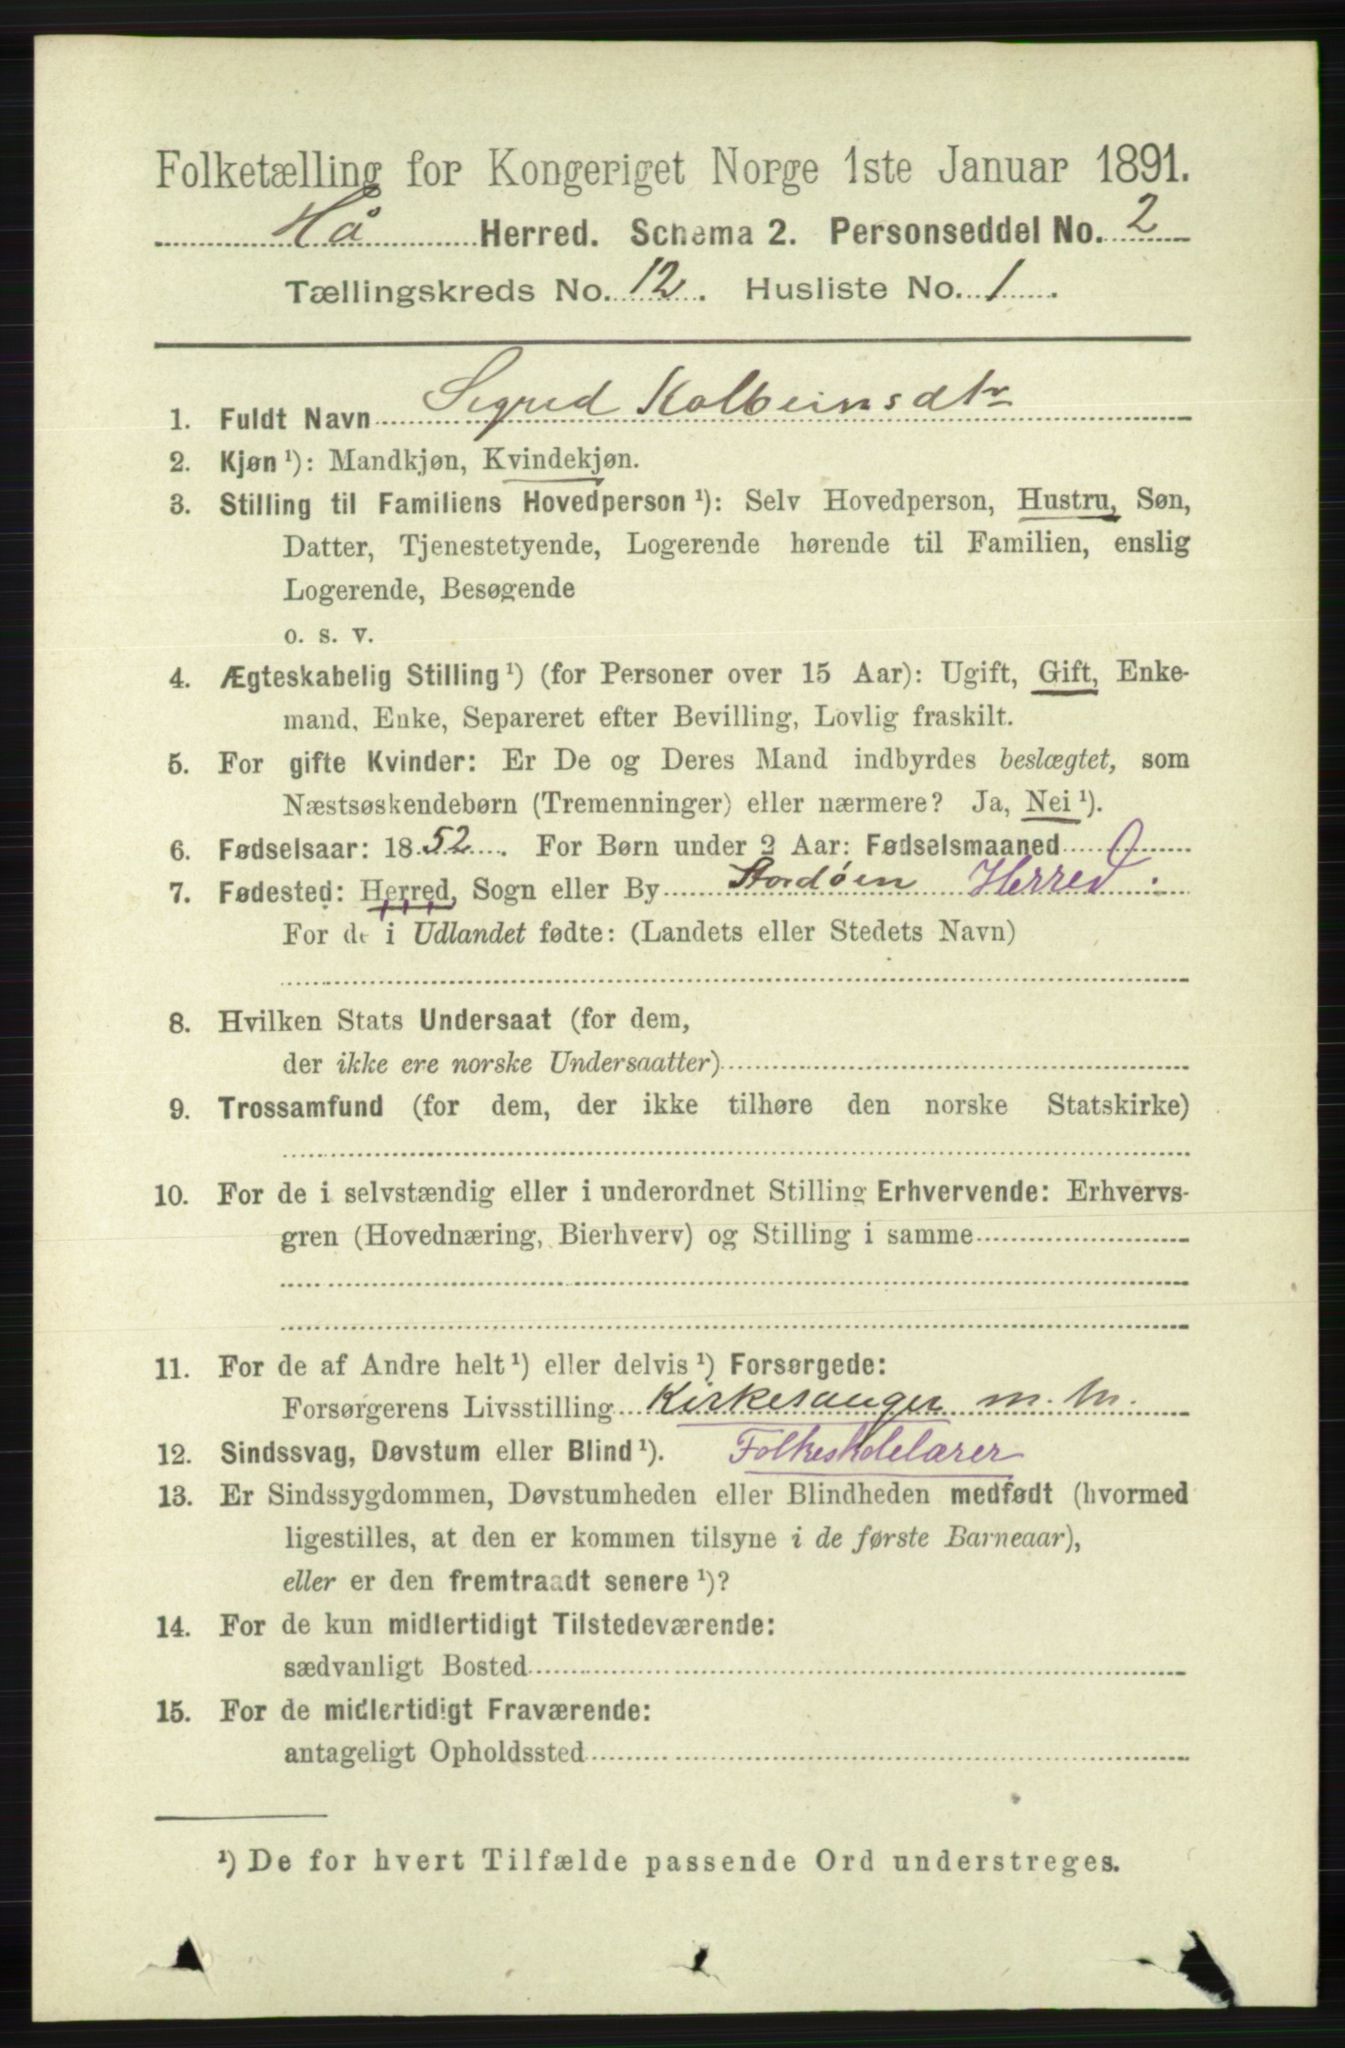 Folketælling for Kongeriget Norge 1ste Januar 1891.
Hå Herred. Schema 2. Personseddel No. 2
Tællingskreds No. 12. Husliste No. 1.
1. Fuldt Navn Sigrid Kolbeinsdtr
2. Kjøn ¹): Mandkjøn, Kvindekjøn.
3. Stilling til Familiens Hovedperson ¹): Selv Hovedperson, Hustru, Søn,
Datter, Tjenestetyende, Logerende hørende til Familien, enslig
Logerende, Besøgende
o. s. v.
4. Ægteskabelig Stilling ¹) (for Personer over 15 Aar): Ugift, Gift, Enke-
mand, Enke, Separeret efter Bevilling, Lovlig fraskilt.
5. For gifte Kvinder: Er De og Deres Mand indbyrdes beslægtet, som
Næstsøskendebørn (Tremenninger) eller nærmere? Ja, Nei ¹).
6. Fødselsaar: 1852. For Børn under 2 Aar: Fødselsmaaned
7. Fødested: Herred, Sogn eller By Stordøen Herred.
For de i Udlandet fødte: (Landets eller Stedets Navn)
8. Hvilken Stats Undersaat (for dem,
der ikke ere norske Undersaatter)
9. Trossamfund (for dem, der ikke tilhøre den norske Statskirke)
10. For de i selvstændig eller i underordnet Stilling Erhvervende: Erhvervs-
gren (Hovednæring, Bierhverv) og Stilling i samme
11. For de af Andre helt ¹) eller delvis ¹) Forsørgede:
Forsørgerens Livsstilling Kirkesanger m. m.
12. Sindssvag, Døvstum eller Blind ¹). Folkeskolelærer
13. Er Sindssygdommen, Døvstumheden eller Blindheden medfødt (hvormed
ligestilles, at den er kommen tilsyne i de første Barneaar),
eller er den fremtraadt senere ¹)?
14. For de kun midlertidigt Tilstedeværende:
sædvanligt Bosted
15. For de midlertidigt Fraværende:
antageligt Opholdssted
¹) De for hvert Tilfælde passende Ord understreges.